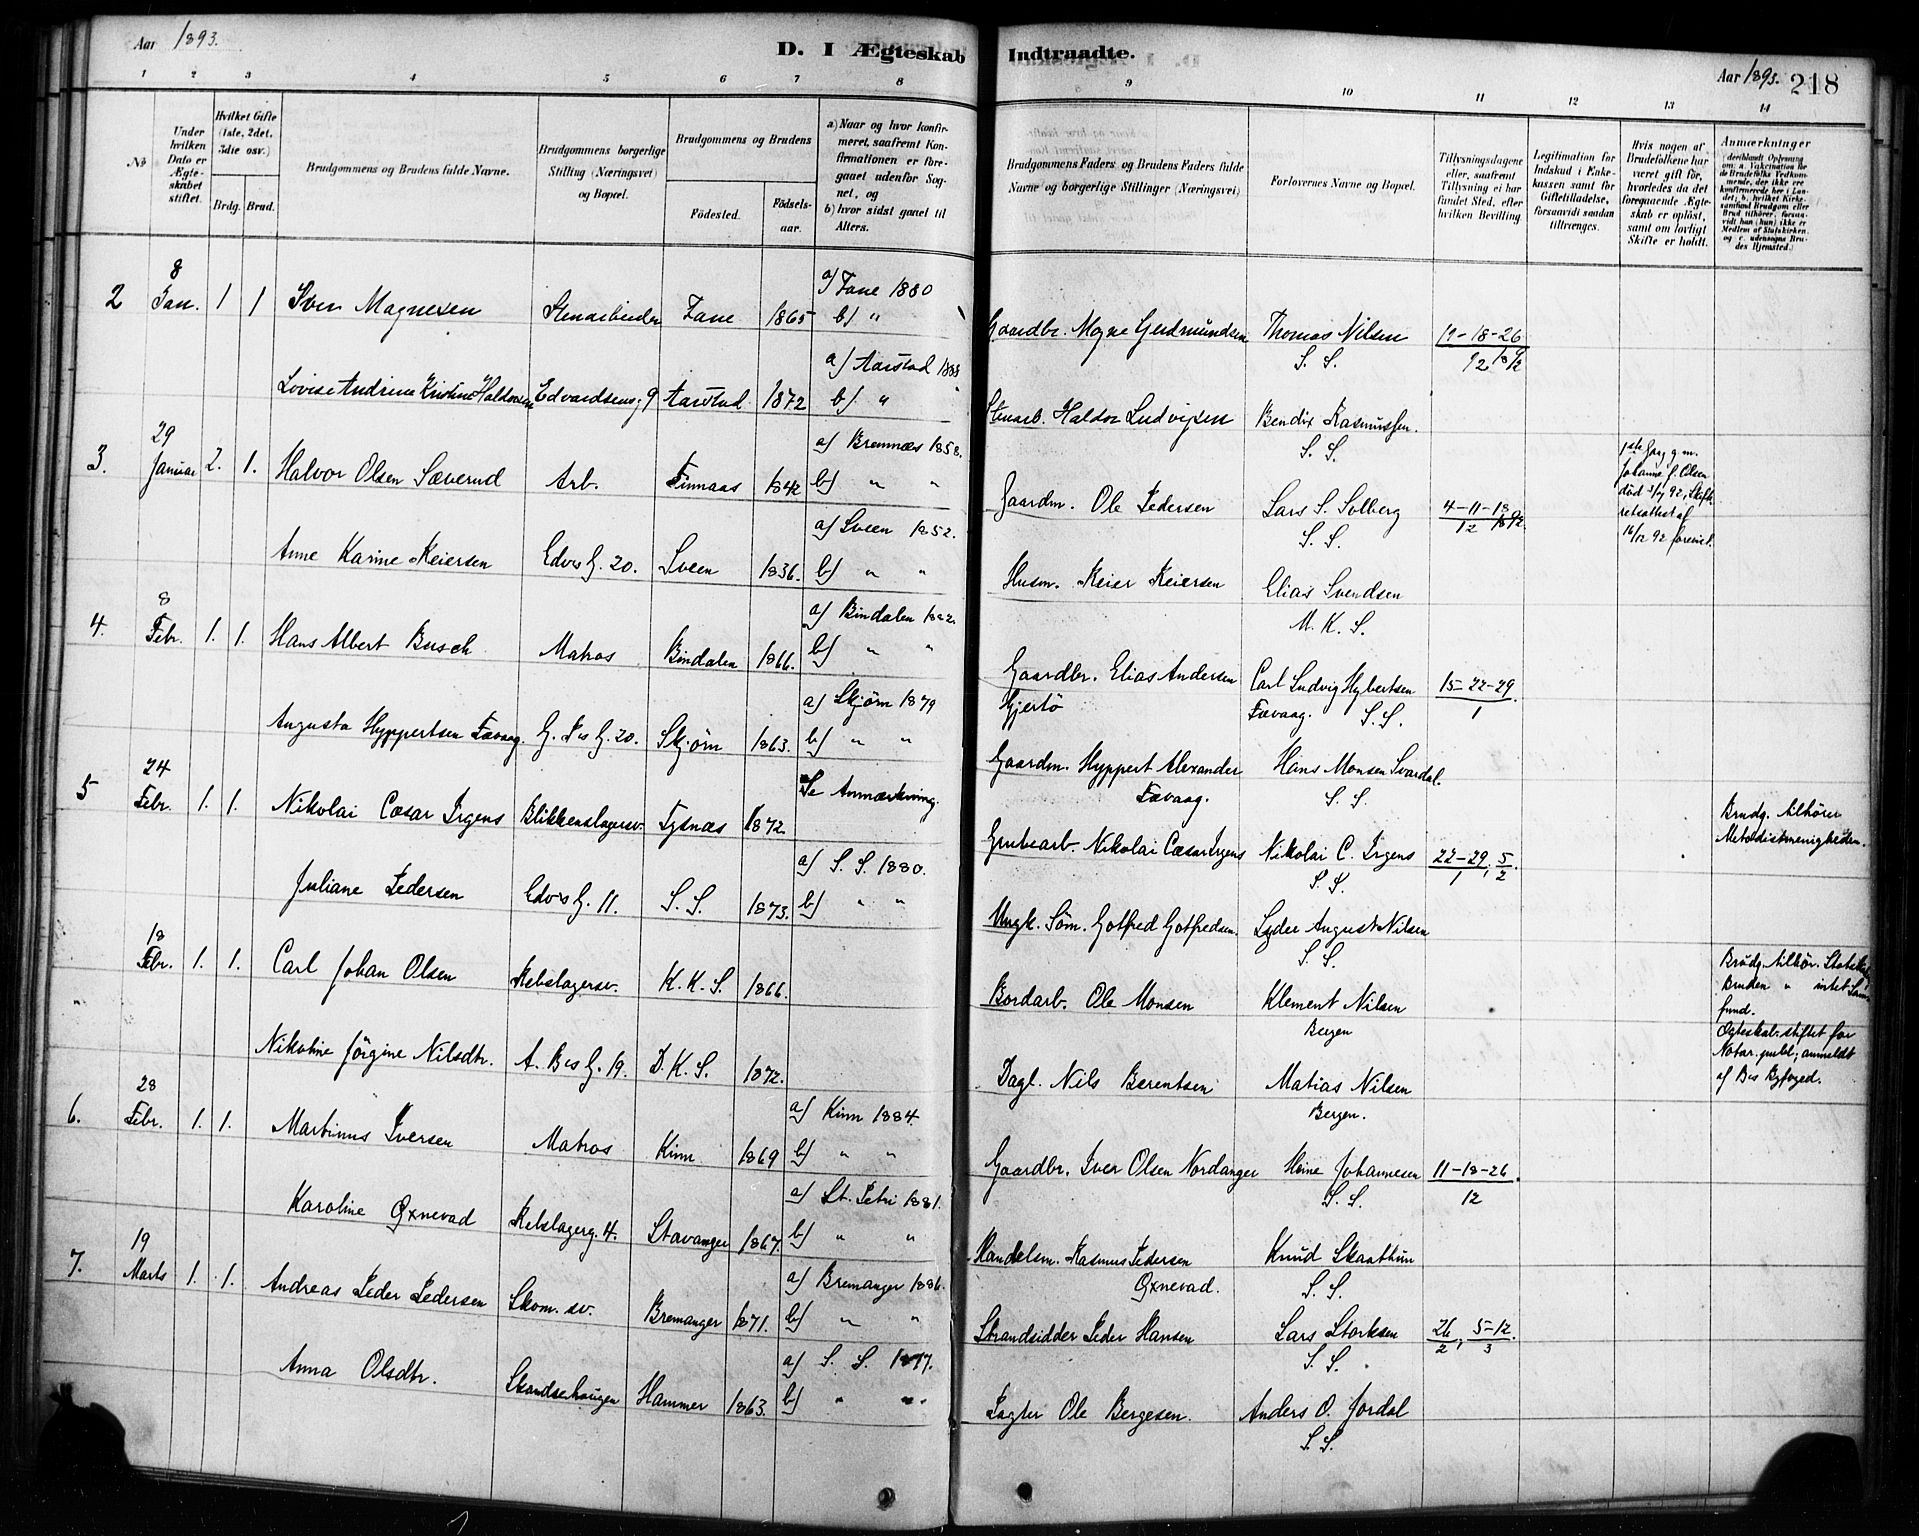 Aar 1893.
D. I Ægteskab Indtraadte.
Aar 1893. 218
1 2 3 4 5 6 7 8 9 10 11 12 13 14
No
Under hvilken Dato er Ægteskabet stiftet.
Hvilket Gifte (1ste, 2det, 3die osv.)
Brdg. Brud.
Brudgommens og Brudens fulde Navne.
Brudgommens borgerlige Stilling (Næringsvei) og Bopæl.
Brudgommens og Brudens
Fødested. Fødselsaar.
a) Naar og hvor konfirmeret, saafremt Konfirmationen er foregaaet udenfor Sognet, og
b) hvor sidst gaaet til Alters.
Brudgommens Faders og Brudens Faders fulde Navne og borgerlige Stillinger (Næringsvei)
Forlovernes Navne og Bopæl.
Tillysningsdagene eller, saafremt Tillysning ei har fundet Sted, efter hvilken Bevilling.
Legitimation for Indskud i Enkekassen samt for Giftetilladelse, forsaavidt saadan tiltrænges.
Hvis nogen af Brudefolkene har været gift før, hvorledes da det foregaaende Ægteskab er opløst, samt om lovligt Skifte er holdt.
Anmerkninger
2 8 Jan. 1 1 Sven Magnesen Stenarbeider Fane 1865 a) Fane 1880
b) "
Gaardbr. Mogne Gudmundsen Thomas Nilsen 19-18-26
S. S. 12 18 92
Lovise Andrine Kristine Haldorsen Edvardsensg. 9 Aarstad 1872 a) Aarstad 1888
b) "
Stenarb. Haldor Ludvigsen Bendix Rasmussen.
S. S.
3. 29 Januar 2. 1. Halvor Olsen Sæverud Arb. Finnaas 1842 a) Bremnæs 1858.
b) " "
Gaardm. Ole Pedersen Lars S. Solberg 4-11-18
S. S. 12 1892.
1ste Gang g. m.
Johanne S. Olsen
død 3/7 92, Skifteretsattest af
16/12 92 forevist.
Anne Karine Reiersen Edvs G. 20. Sveen 1836. a) Sveen 1852.
b) " "
Husm. Reier Reiersen Elias Svendsen
M. K. S.
4. 8 Febr. 1. 1. Hans Albert Busch Matros Bindalen 1866. a) Bindalen 1882.
b) " "
Gaardbr. Elias Andersen Carl Ludvig Hybertsen 15-22-29.
Gjertø Fævaag. S. S. 1
Augusta Hyppertsen Fævaag. G. Ps G. 20. Skjørn 1863. a) Skjørn 1879
b) " "
Gaardm. Hyppert Alexander Hans Monsen Svardal.
Fævaag. S. S.
5 24 Febr. 1. 1. Nikolai Cæsar Irgens Blikkenslagersv. Tysnæs 1872. Se Anmærkning.
Grubearb. Nikolai Cæsar Irgens Nikolai C. Irgens 22-29, 5
S. S. 1 2
Brudg. tilhører
Metodistmenigheden.
Juliane Pedersen Edvs G. 11. S. S. 1873. a) S. S. 1880.
b) " "
Ungk. Søm. Gotfred Gotfredsen. Lyder August Nilsen
S. S.
" 18 Febr. 1. 1. Carl Johan Olsen Rebslagersv. K. K. S. 1866.
Bordarb. Ole Monsen Klement Nilsen
Bergen
Brudg. tilhør. Statskirk
Bruden " intet Samfund.
Ogteskab. stiftet for
Notar. publ; anmeldt
af Bes Byfoged.
Nikoline Jørgine Nilsdtr. A. Bes G. 19. D. K. S. 1872.
Dagl. Nils Berentsen Matias Nilsen
Bergen.
6. 28 Febr. 1. 1. Martinus Iversen Matros Kinn 1869 a) Kinn 1884.
b) " "
Gaardbr. Iver Olsen Nordanger Heine Johannesen 11-18-26.
S. S. 12
Karoline Oxnevad Rebslagerg. 4. Stavanger 1867. a) St. Petri 1881.
b) " "
Handelsm. Rasmus Pedersen Knud Skaathun
Oxnevad. S. S.
7. 19 Marts 1. 1. Andreas Peder Pedersen Skom. sv. Bremanger 1871. a) Bremanger 1886.
b) " "
Strandsidder Peder Hansen Lars Storksen 26, 5-12.
S. S. 2 3
Anna Olsdtr. Skandsehougen Hammer 1863. a) S. S. 1877.
b) " "
Pagter Ole Bergesen. Anders O. Jordal
S. S.